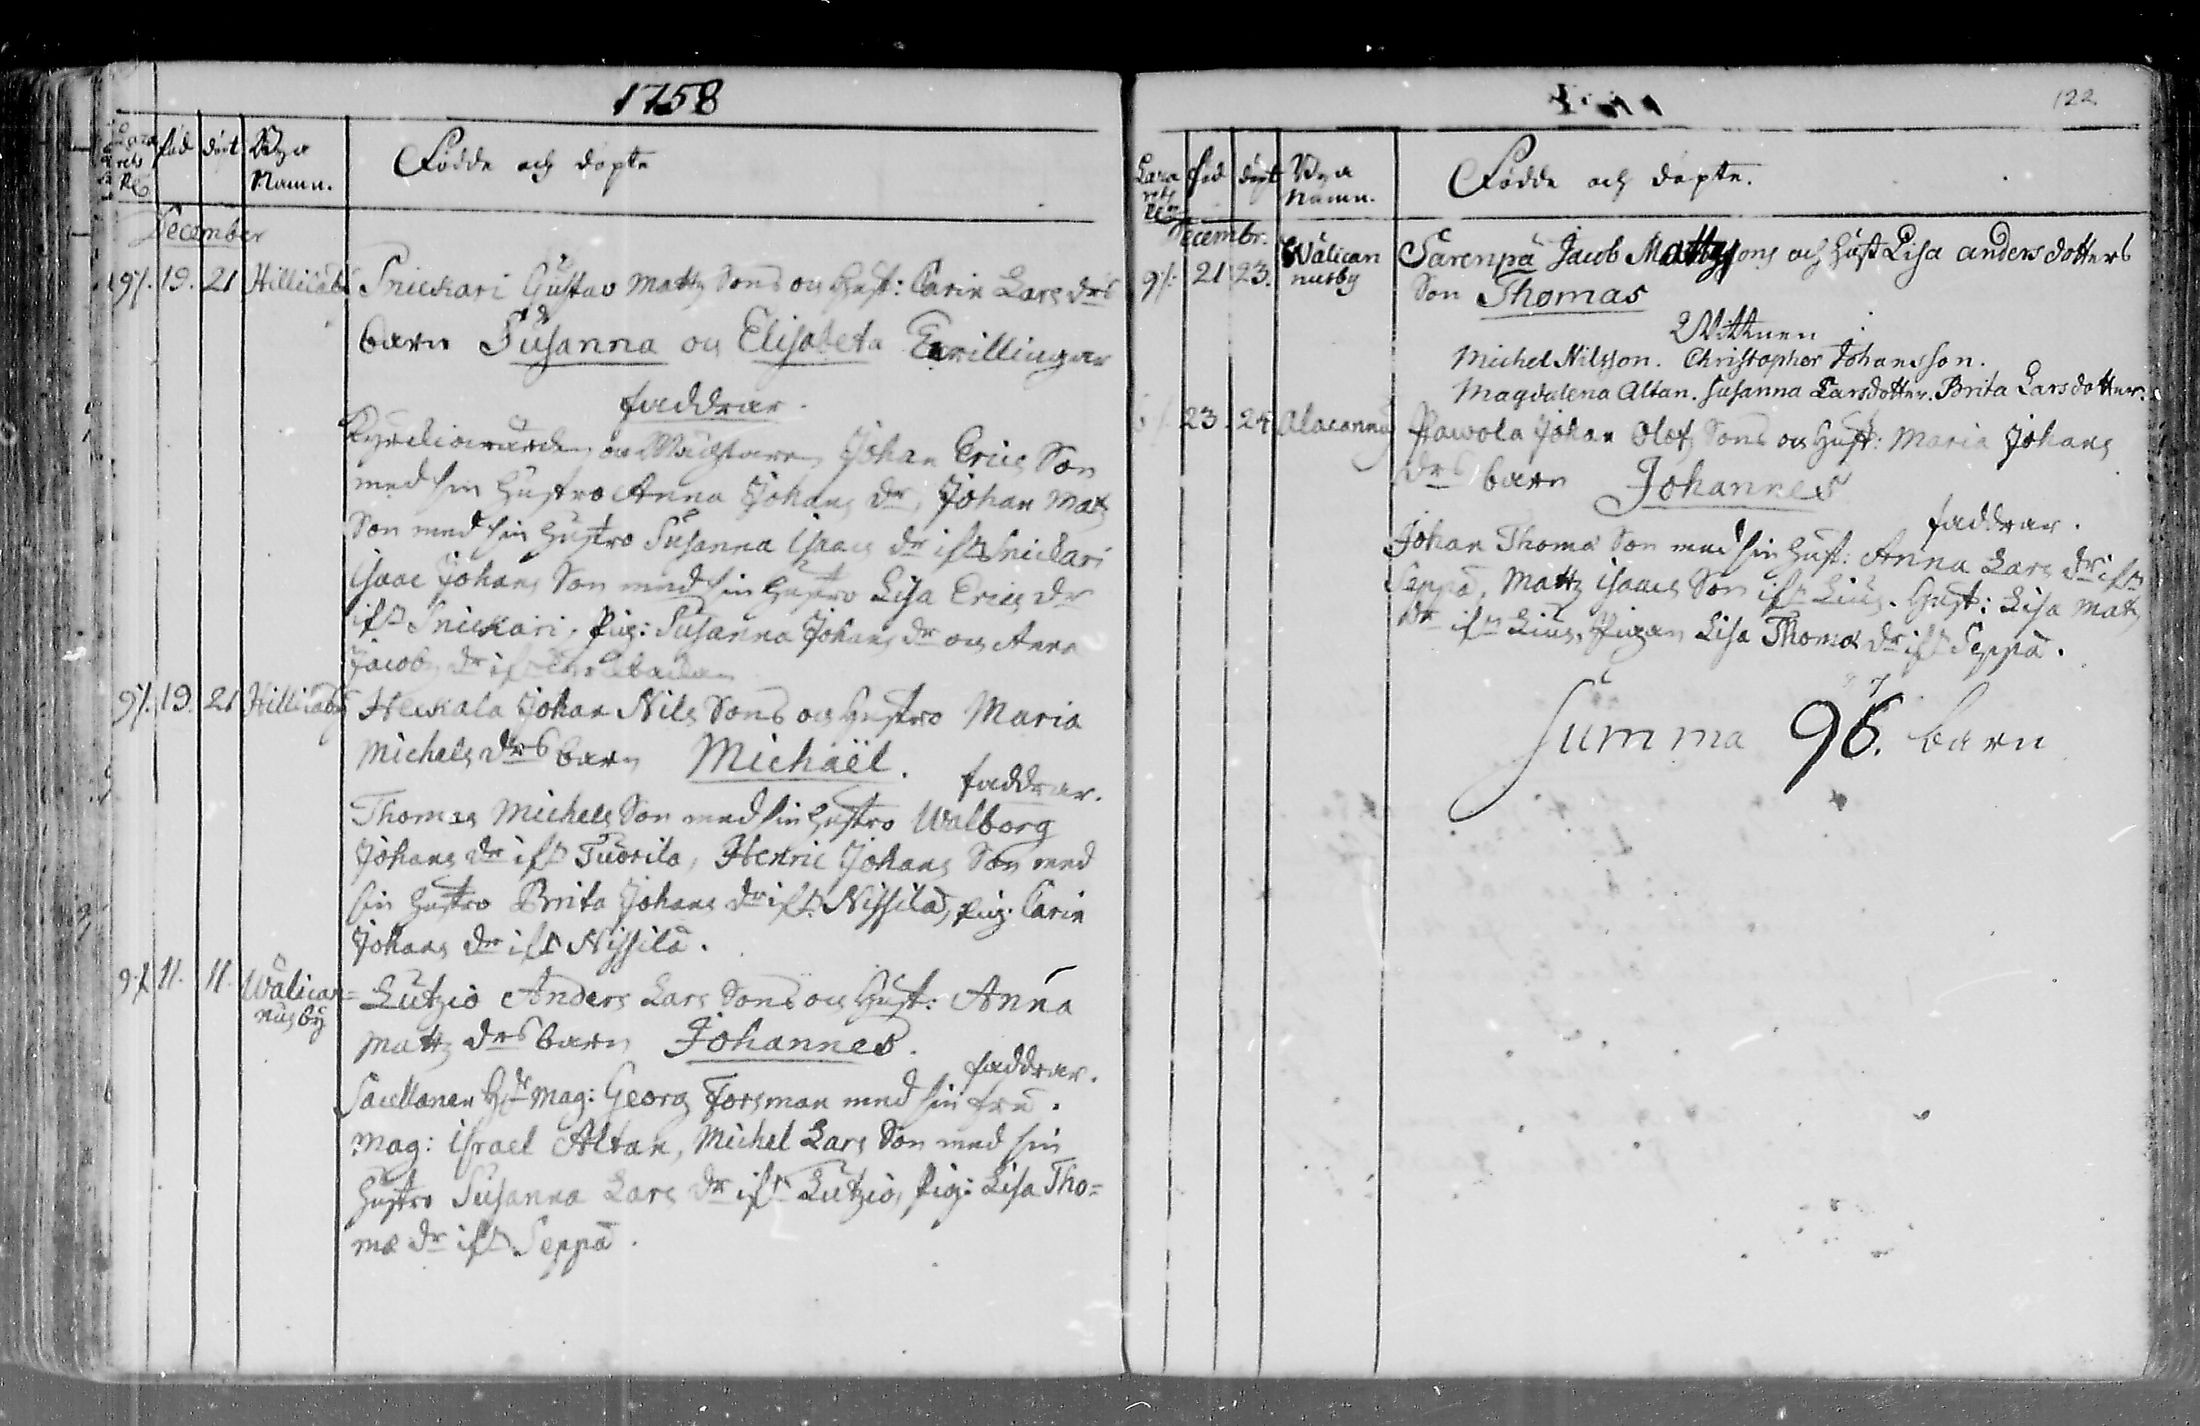 1758
född
döpt
Bya
Namn.
Födde och döpte
December
9/. 19. 21 Snickari Gustav Mattz Sons och Hust: Carin Lars drs
barn Susanna och Elisabeta Twillingar
faddrar.
Johan Erics Son
med sin Hustro Anna Johans dr, Johan Matz
Son med sin Hustro Susanna Isaacs dr ifrn Snickari
Isaac Johans Son med sin Hustro Lisa Erics dr
ifrn Snickari, Pig: Susanna Johans dr och Anna
Jacobs dr ifrn
9/. 19. 21 Heickala Johan Nils Sons och Hustro Maria
Michels drs barn Michaël.
faddrar.
Thomas Michels Son med sin Hustro Walborg
Johans dr ifrn Tuorila, Henric Johans Son med
sin Hustro Brita Johans dr ifrn Nissilä, pig: Carin
Johans dr ifrn Nissilä.
9/. 11. 11. Wälican=
nusby
Lutzio Anders Lars Sons och Hust: Anna
Mattz drs barn Johannes.
faddrar.
Mag: Georg Forsman med sin fru.
Mag: Israel Altan, Michel Lars Son med sin
Hustro Susanna Lars dr ifrn Lutzio, Pig: Lisa Tho=
mæ dr ifrn Seppä.
122
född
döpt
Bya
Namn.
Födde och döpte.
Decembr.
9/. 21 23. Wälican
nusby
Särenpä Jacob Mattzsons och Hust Lisa anders dotters
Son Thomas
Wittnen
Michel Nilsson. Christopher Johansson.
Magdalena Altan. Susanna Larsdotter. Brita Larsdotter.
23. 24 Alacannus Pawola Johan Olofs Sons och Hust: Maria Johans
drs barn Johannes
faddrar.
Johan Thomæ Son med sin Hust: Anna Lars dr ifrn
Seppä, Mattz Isaacs Son ifrn Lius. Hust: Lisa Matz
dr ifrn Lius, Pigan Lisa Thomæ dr ifrn Seppä.
Summa 96. barn